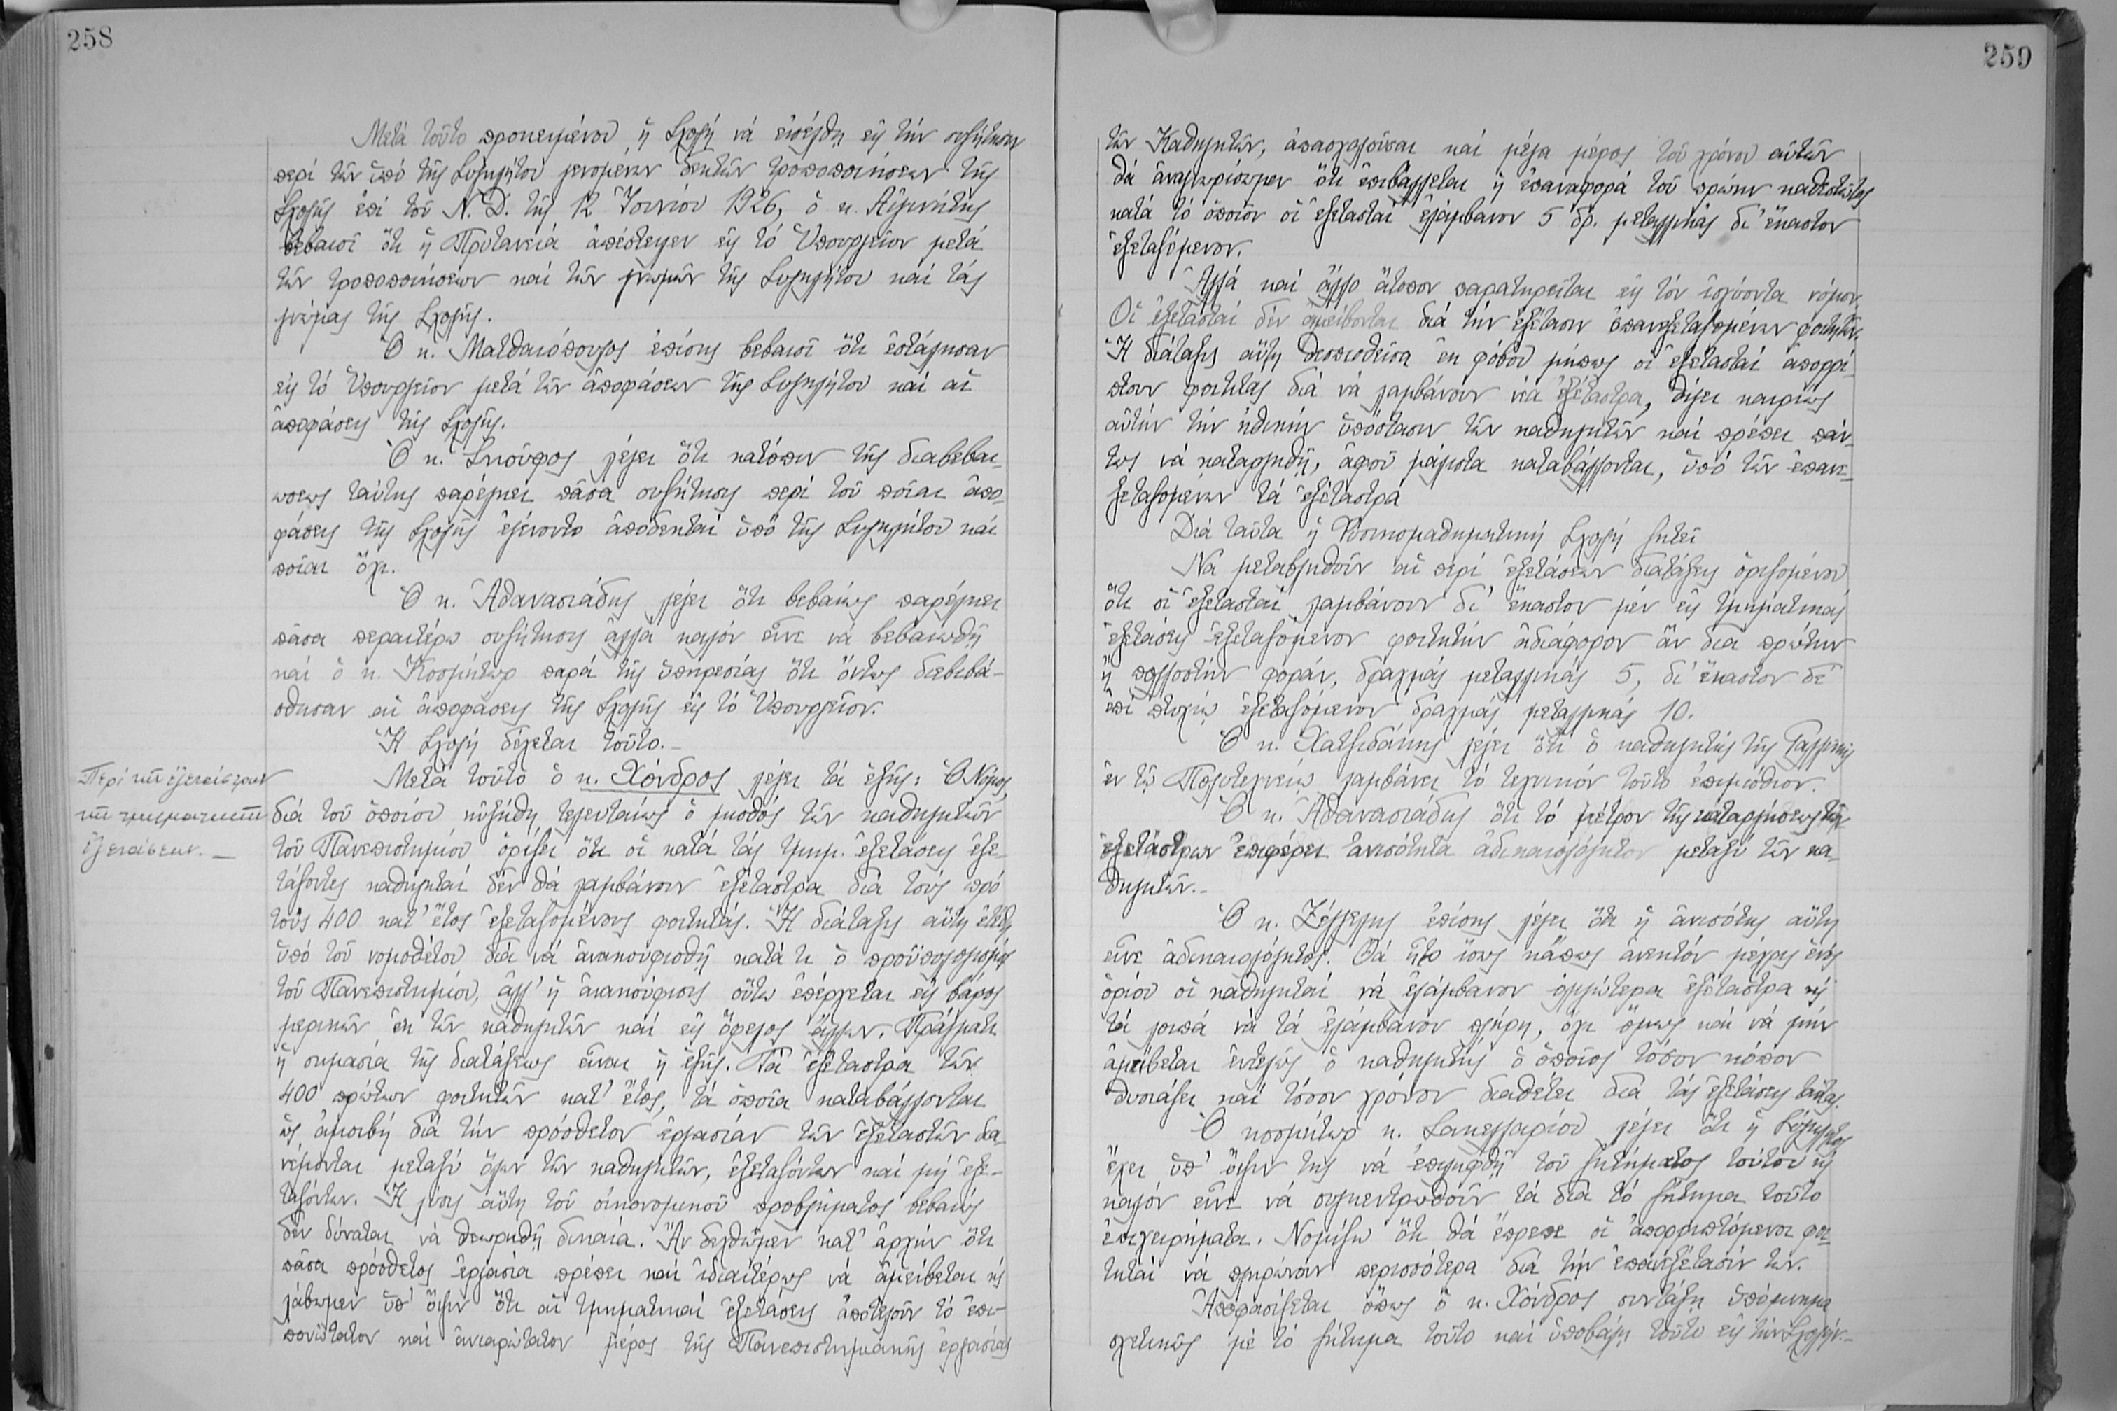 258
Μετὰ τοῦτο προκειμένου ἡ Σχολὴ νὰ εἰσέλθῃ εἰς τὴν συζήτησιν
περὶ τῶν ὑπὸ τῆς Συγκλήτου γενομένων δεκτῶν τροποποιήσεων τῆς
Σχολῆς ἐπὶ τοῦ Ν. Δ. τῆς 12 Ἰουνίου 1926, ὁ κ. Αἰγινήτης
βεβαιοῖ ὅτι ἡ Πρυτανεία ἀπέστειλεν εἰς τὸ Ὑπουργεῖον μετὰ
τῶν τροποποιήσεων καὶ τῶν γνωμῶν τῆς Συγκλήτου καὶ τὰς
γνώμας τῆς Σχολῆς.
Ὁ κ. Ματθαιόπουλος ἐπίσης βεβαιοῖ ὅτι ἐστάλησαν
εἰς τὸ Ὑπουργεῖον μετὰ τῶν ἀποφάσεων τῆς Συγκλήτου καὶ αἱ
ἀποφάσεις τῆς Σχολῆς.
Ὁ κ. Σκοῦφος λέγει ὅτι κατόπιν τῆς διαβεβαι-
ώσεως ταύτης παρέλκει πᾶσα συζήτησις περὶ τοῦ ποῖαι ἀπο-
φάσεις τῆς Σχολῆς ἐγένοντο ἀποδεκταὶ ὑπὸ τῆς Συγκλήτου καὶ
ποῖαι ὄχι.
Ὁ κ. Ἀθανασιάδης λέγει ὅτι βεβαίως παρέλκει
πᾶσα περαιτέρω συζήτησις ἀλλὰ καλὸν εἶνε νὰ βεβαιωθῇ
καὶ ὁ κ. Κοσμήτωρ παρὰ τῆς ὑπηρεσίας ὅτι ὄντως διεβιβά-
σθησαν αἱ ἀποφάσεις τῆς Σχολῆς εἰς τὸ Ὑπουργεῖον.
Ἡ Σχολὴ δέχεται τοῦτο.-
Περὶ τῶν ἐξετάστρων
τῶν τμηματικῶν
ἐξετάσεων.-
Μετὰ τοῦτο ὁ κ. Χόνδρος λέγει τὰ ἑξῆς: Ὁ Νόμος
διὰ τοῦ ὁποίου ηὐξήθη τελευταίως ὁ μισθὸς τῶν καθηγητῶν
τοῦ Πανεπιστημίου ὁρίζει ὅτι οἱ κατὰ τὰς τμημ. ἐξετάσεις ἐξε-
τάζοντες καθηγηταὶ δὲν θὰ λαμβάνουν ἐξέταστρα διὰ τοὺς πρὸ
τοὺς 400 κατ' ἔτος ἐξεταζομένους φοιτητάς. Ἡ διάταξις αὕτη ἐτέθη
ὑπὸ τοῦ νομοθέτου διὰ νὰ ἀνακουφισθῇ κατά τι ὁ προϋπολογισμὸς
τοῦ Πανεπιστημίου, ἀλλ' ἡ ἀνακούφισις οὕτω ἐπέρχεται εἰς βάρος
μερικῶν ἐκ τῶν καθηγητῶν καὶ εἰς ὄφελος ἄλλων. Πράγματι
ἡ σημασία τῆς διατάξεως εἶναι ἡ ἑξῆς. Τὰ ἐξέταστρα τῶν
400 πρώτων φοιτητῶν κατ' ἔτος, τὰ ὁποῖα καταβάλλονται
ὡς ἀμοιβὴ διὰ τὴν πρόσθετον ἐργασίαν τῶν ἐξεταστῶν δια-
νέμονται μεταξὺ ὅλων τῶν καθηγητῶν, ἐξεταζόντων καὶ μὴ ἐξε-
ταζόντων. Ἡ λύσις αὕτη τοῦ οἰκονομικοῦ προβλήματος βεβαίως
δὲν δύναται νὰ θεωρηθῇ δικαία. Ἂν δεχθῶμεν κατ' ἀρχὴν ὅτι
πᾶσα πρόσθετος ἐργασία πρέπει καὶ ἰδιαιτέρως νὰ ἀμείβεται κὶ
λάβωμεν ὑπ' ὄψιν ὅτι αἱ τμηματικαὶ ἐξετάσεις ἀποτελοῦν τὸ ἐπι-
πονώτατον καὶ ἀνιαρώτατον μέρος τῆς Πανεπιστημιακῆς ἐργασίας
259
τῶν Καθηγητῶν, ἀπασχολοῦσαι καὶ μέγα μέρος τοῦ χρόνου αὐτῶν
θὰ ἀναγνωρίσωμεν ὅτι ἐπιβάλλεται ἡ ἐπαναφορὰ τοῦ πρώην καθεστῶτος
κατὰ τὸ ὁποῖον οἱ ἐξετασταὶ ἐλάμβανον 5 δρ. μεταλλικὰς δι' ἕκαστον
ἐξεταζόμενον.
Ἀλλὰ καὶ ἄλλο ἄτοπον παρατηρεῖται εἰς τὸν ἰσχύοντα νόμον.
Οἱ ἐξετασταὶ δὲν ἀμείβονται διὰ τὴν ἐξέτασιν ἐπανεξεταζομένων φοιτητῶν.
Ἡ διάταξις αὕτη θεσπισθεῖσα ἐκ φόβου μήπως οἱ ἐξετασταὶ ἀπορρί-
πτουν φοιτητὰς διὰ νὰ λαμβάνουν νέα ἐξέταστρα, θίγει καιρίως
αὐτὴν τὴν ἠθικὴν ὑπόστασιν τῶν καθηγητῶν καὶ πρέπει πάν-
τως νὰ καταργηθῇ, ἀφοῦ μάλιστα καταβάλλονται, ὑπὸ τῶν ἐπανε-
ξεταζομένων τὰ ἐξέταστρα
Διὰ ταῦτα ἡ Φυσικομαθηματικὴ Σχολὴ ζητεῖ
Νὰ μεταβληθοῦν αἱ περὶ ἐξετάσεων διατάξεις ὁριζομένου
ὅτι οἱ ἐξετασταὶ λαμβάνουν δι' ἕκαστον μὲν εἰς τμηματικὰς
ἐξετάσεις ἐξεταζόμενον φοιτητὴν ἀδιάφορον ἂν διὰ πρώτην
ἢ πολλοστὴν φοράν, δραχμὰς μεταλλικὰς 5, δι' ἕκαστον δὲ
ἐπὶ πτυχίῳ ἐξεταζόμενον δραχμὰς μεταλλικὰς 10.
Ὁ κ. Χατζιδάκης λέγει ὅτι ὁ καθηγητὴς τῆς Γαλλικῆς
ἐν τῷ Πολυτεχνείῳ λαμβάνει τὸ τεχνικὸν τοῦτο ἐπιμίσθιον.
Ὁ κ. Ἀθανασιάδης ὅτι τὸ μέτρον τῆς καταργήσεως τῶν
ἐξετάστρων ἐπιφέρει ἀνισότητα ἀδικαιολόγητον μεταξὺ τῶν κα-
θηγητῶν.-
Ὁ κ. Ζέγγελης ἐπίσης λέγει ὅτι ἡ ἀνισότης αὕτη
εἶνε ἀδικαιολόγητος. Θὰ ἦτο ἴσως κάπως ἀνεκτὸν μέχρις ἑνὸς
ὁρίου οἱ καθηγηταὶ νὰ ἐλάμβανον ὀλιγώτερα ἐξέταστρα κὶ
τὰ λοιπὰ νὰ τὰ ἐλάμβανον πλήρη, ὄχι ὅμως καὶ νὰ μὴν
ἀμείβεται ἐντελῶς ὁ καθηγητὴς ὁ ὁποῖος τόσον κόπον
θυσιάζει καὶ τόσον χρόνον διαθέτει διὰ τὰς ἐξετάσεις ταύτας.
Ὁ κοσμήτωρ κ. Σακελλαρίου λέγει ὅτι ἡ Σύγκλητος
ἔχει ὑπ' ὄψιν της νὰ ἐπιληφθῇ τοῦ ζητήματος τούτου κὶ
καλὸν εἶνε νὰ συγκεντρωθοῦν τὰ διὰ τὸ ζήτημα τοῦτο
ἐπιχειρήματα. Νομίζω ὅτι θὰ ἔπρεπε οἱ ἀπορριπτόμενοι φοι-
τηταὶ νὰ πληρώνουν περισσότερα διὰ τὴν ἐπανεξέτασίν των.
Ἀποφασίζεται ὅπως ὁ κ. Χόνδρος συντάξῃ ὑπόμνημα
σχετικῶς μὲ τὸ ζήτημα τοῦτο καὶ ὑποβάλῃ τοῦτο εἰς τὴν Σχολήν.-